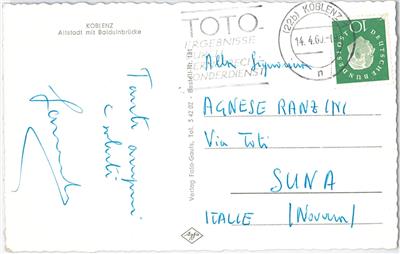 KOBLENZ
Altstadt mit Balduinbrücke
Tanti auguri
e saluti
Verlag Foto-Gauls, S 42 02 - Bestell-Nr. 181
Agfa
TOTO-
ERGEBNISSE
SONDERDIENST
(22b) KOBLENZ
14. 4. 60
n
DEUTSCHE BUNDESPOST
10
Alla Signorina
AGNESE RANZINI
Via Toti
SUNA
ITALIE (Novara)